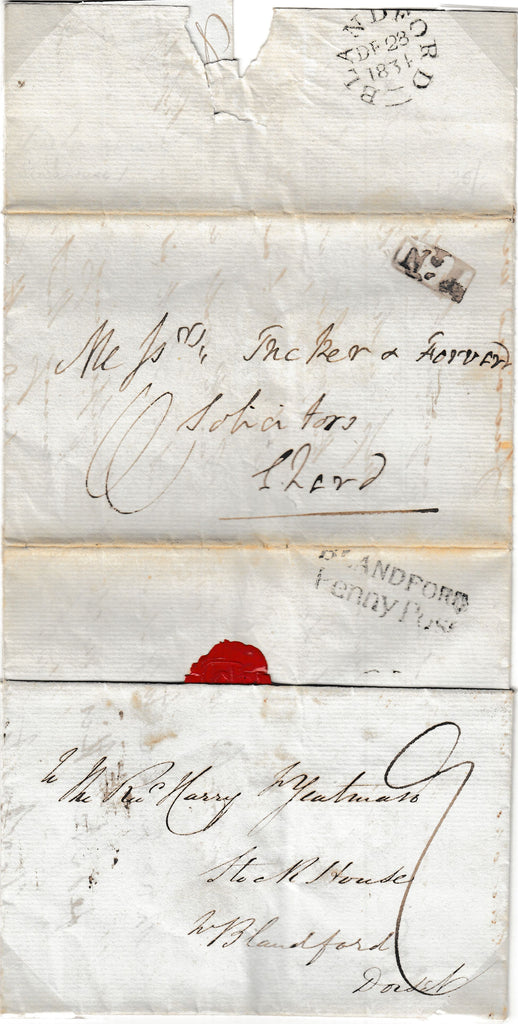 BLANDFORD
DE 28
1831
No. 1
Messrs. Tucker & Forward
Solicitors
Chard
BLANDFORD
Penny Post
The Revd. Harry Yeatman
Stock House
Blandford
Dorset